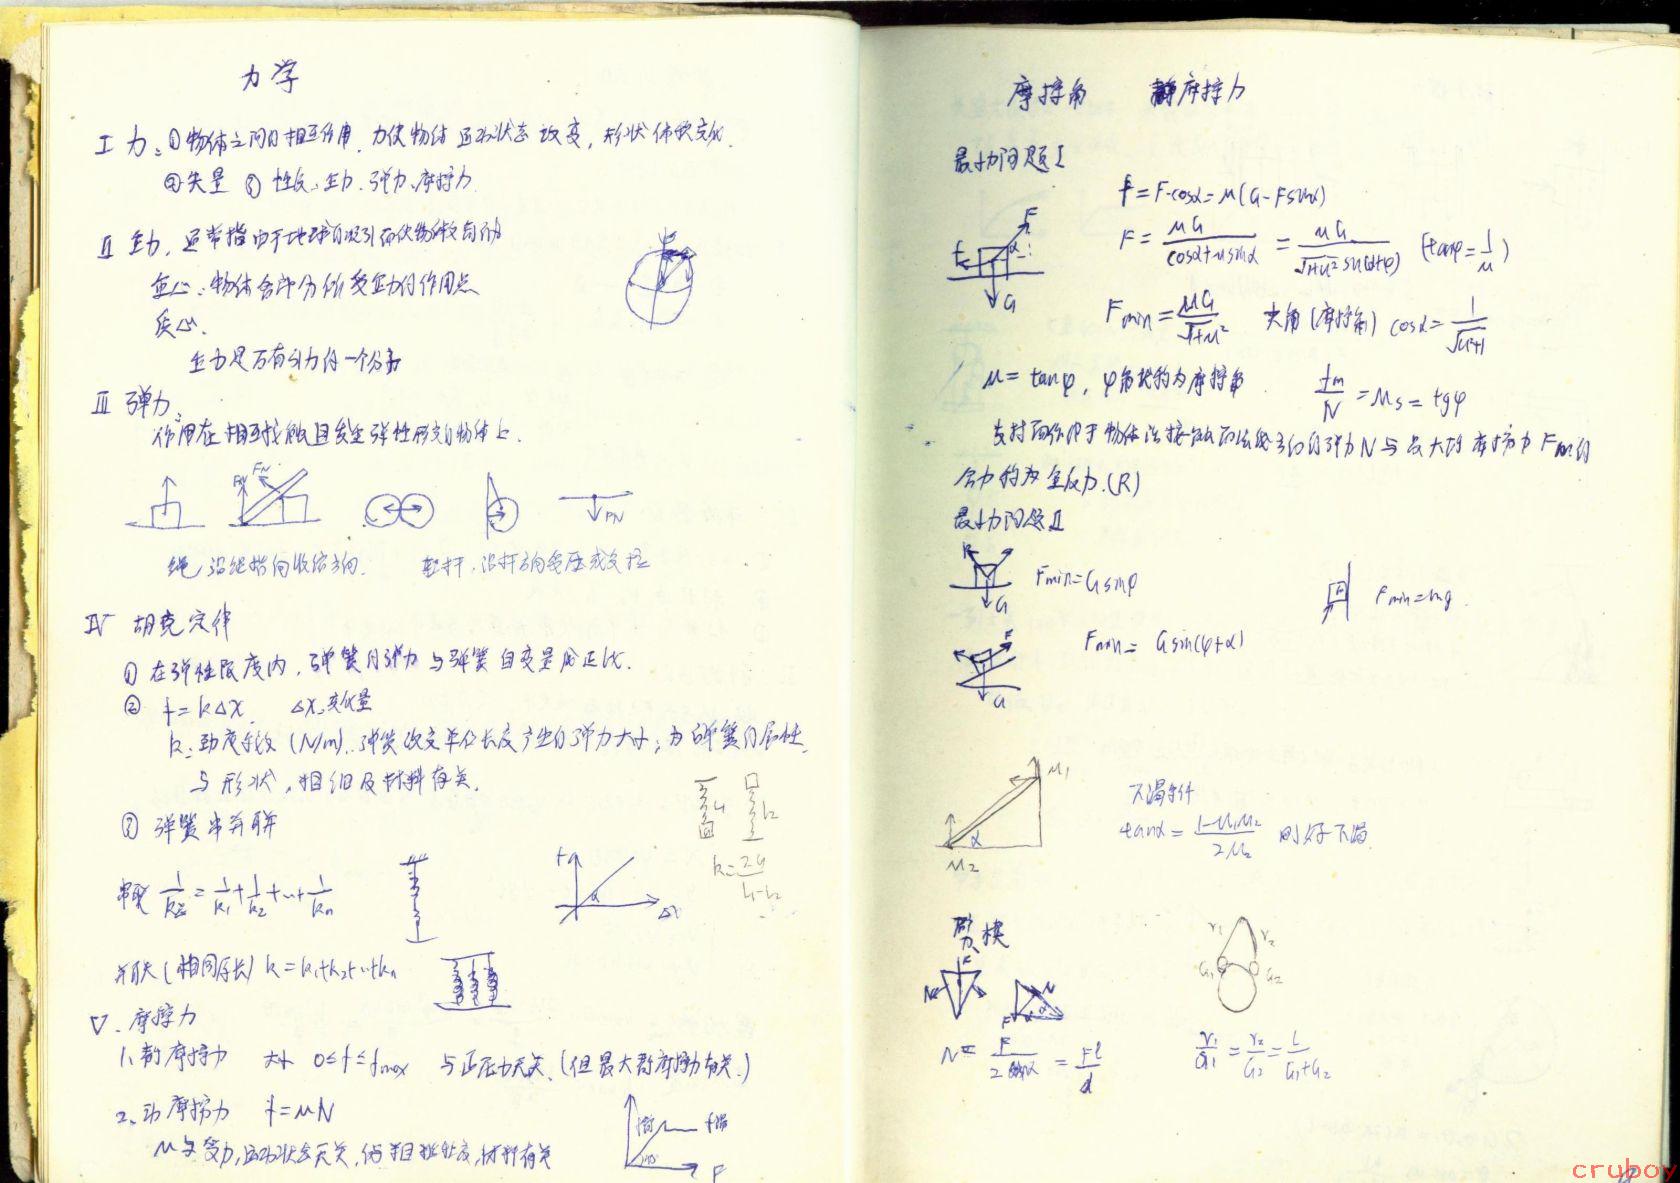 力学
I 力：①物体之间的相互作用，力使物体运动状态改变，形状体积变化．
②矢量 ③ 性质：重力、弹力、摩擦力
II 重力，通常指由于地球的吸引而使物体受到的力
重心：物体各部分所受重力的作用点
质心．
重力是万有引力的一个分力
III 弹力：
作用在相互接触且发生弹性形变的物体上．
FN FN
FN
绳沿绳指向收缩方向． 轻杆，沿杆方向受压或支撑
IV 胡克定律
① 在弹性限度内，弹簧的弹力与弹簧自变量成正比．
② f=kΔx． Δx：变化量
k：劲度系数 (N/m)．弹簧改变单位长度产生的弹力大小；为弹簧的属性，
与形状，粗细及材料有关．
③ 弹簧串并联
串联 1/k总=1/k1+1/k2+…+1/kn
f α Δx
并联(相同原长) k=k1+k2+…+kn
V．摩擦力
1、静摩擦力 大小 0≤f≤fmax 与正压力无关．(但最大静摩擦力有关．)
2、动摩擦力 f=μN
μ与受力，运动状态无关，但与粗糙程度，材料有关
F
摩擦角 静摩擦力
最小力问题I
f=F·cosα=μ(G-Fsinα)
F=μG/(cosα+μsinα)=μG/(√(1+μ²)sin(α+φ)) (tanφ=1/μ)
f F α G
Fmin=μG/√(1+μ²) 夹角(摩擦角) cosα=1/√(μ²+1)
μ=tanφ，φ角称为摩擦角． fm/N=μs=tgφ
支持面作用于物体沿接触面法线方向的弹力N与最大静摩擦力Fm的
合力称为全反力．(R)
最小力问题II
R G Fmin=Gsinφ Fmin=mg．
F G Fmin=Gsin(φ+α)
μ1 α μ2
不滑条件
tanα=(1-μ1μ2)/2μ2 则好不滑
劈、楔
F N
F N α
r1 r2 G1 G2
N=F/2sinα=Fl/d
r1/G1=r2/G2=L/(G1+G2)
cruboy